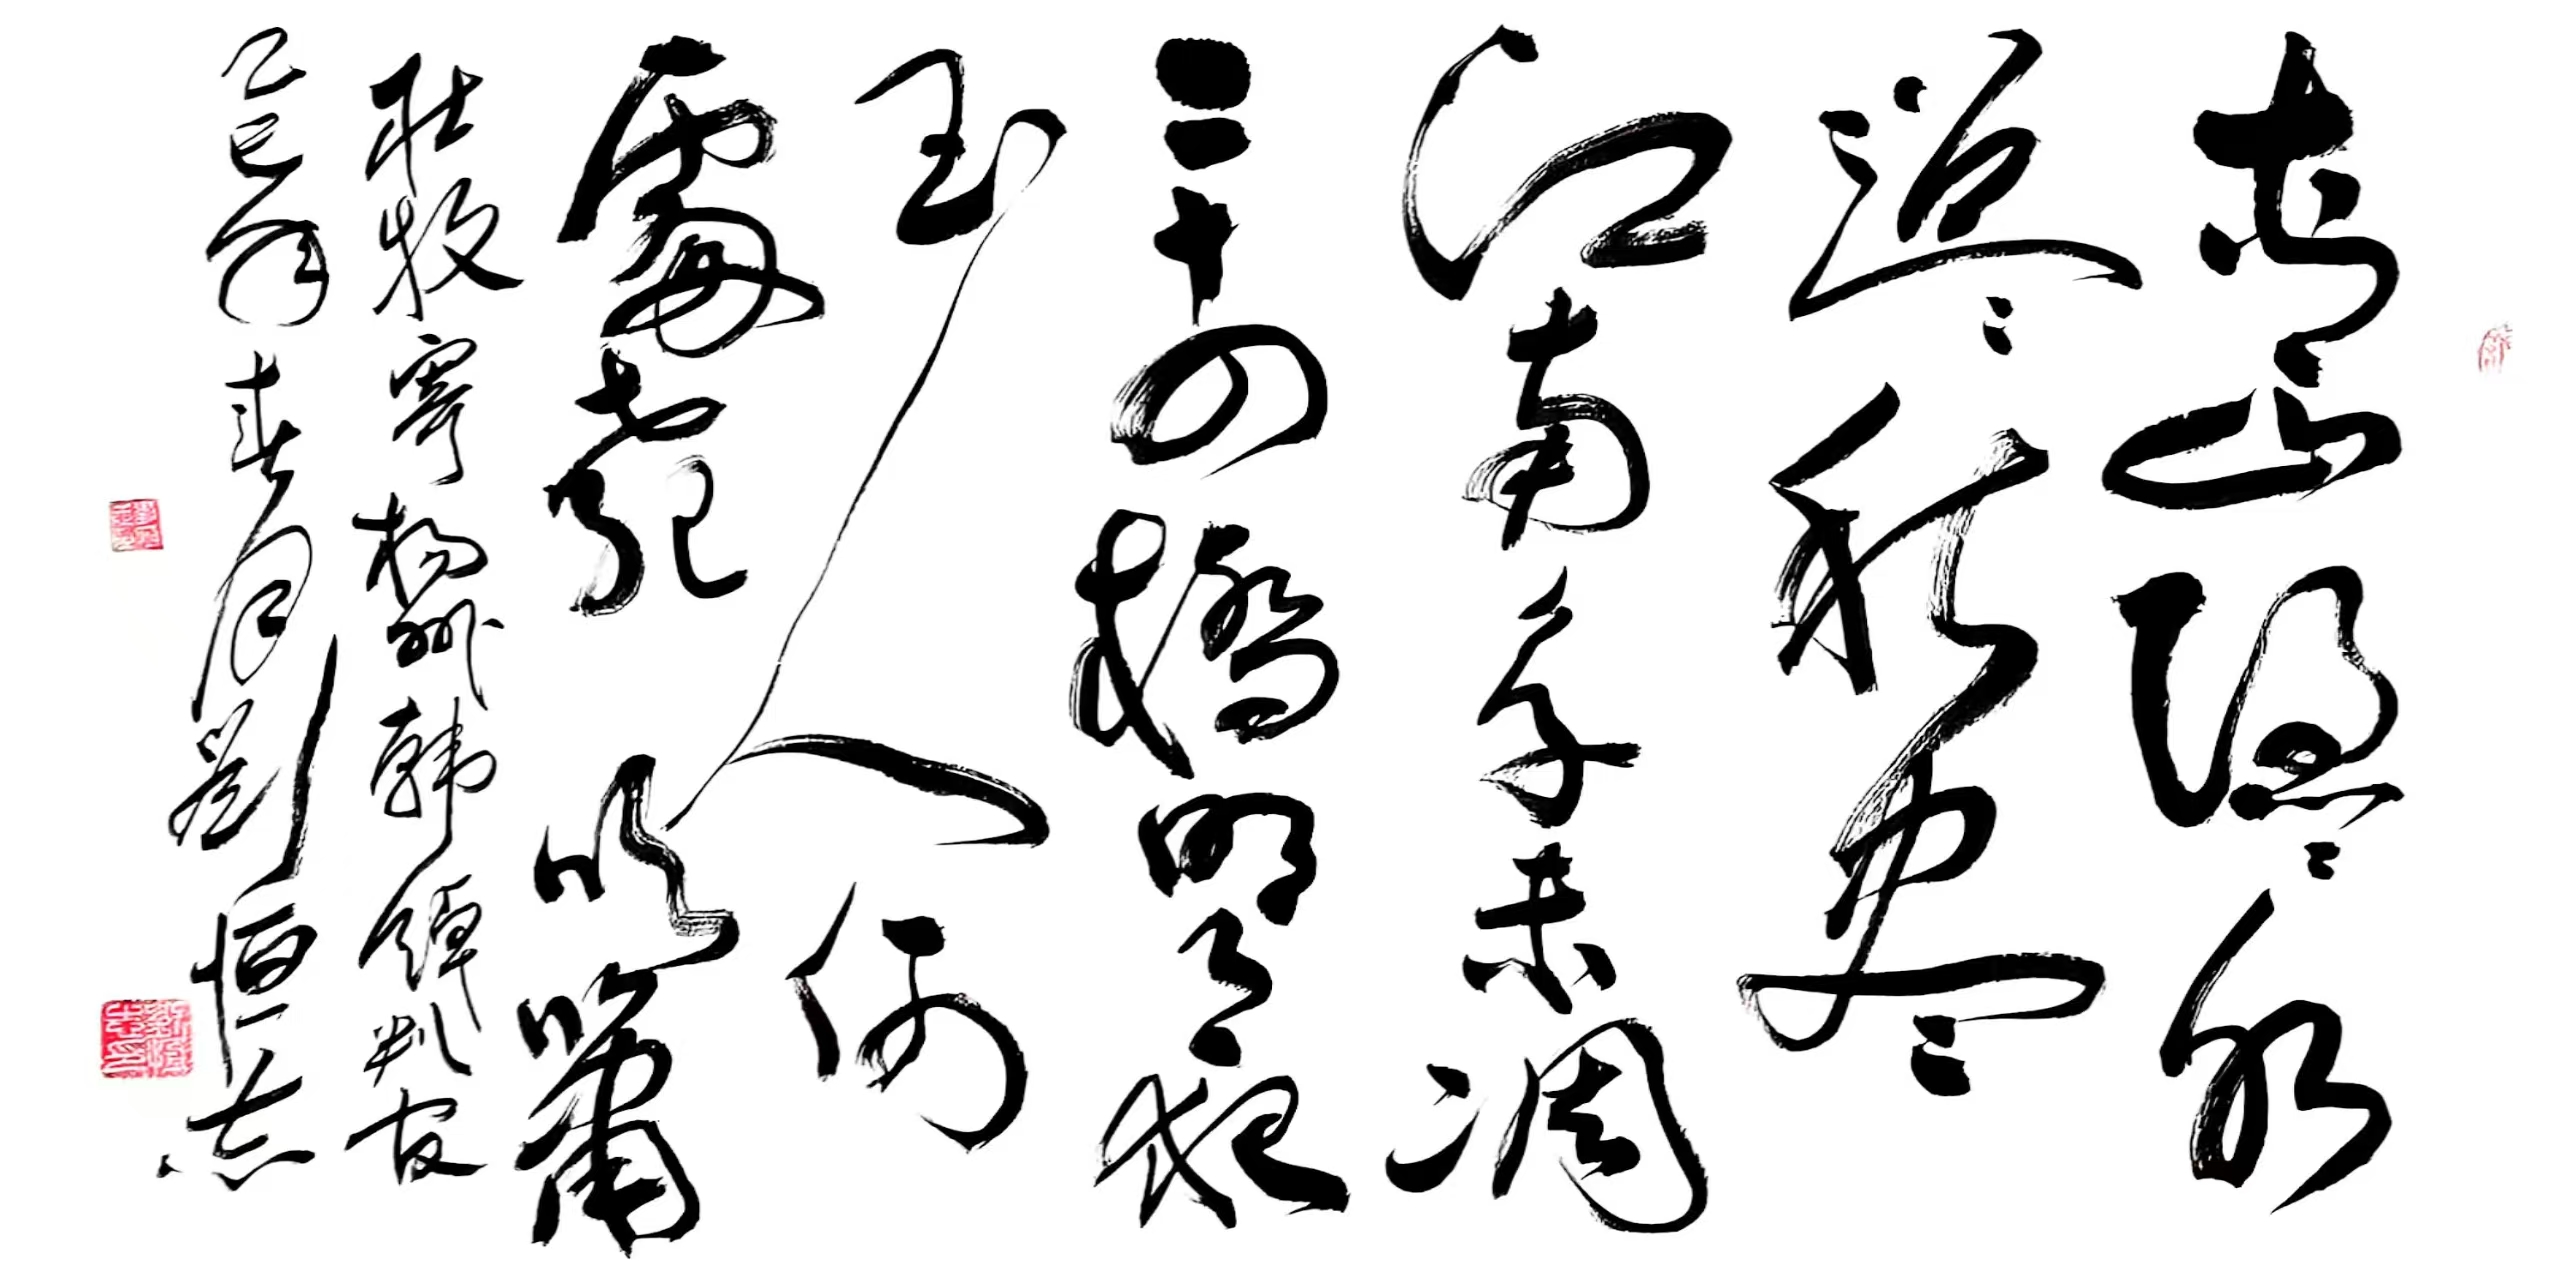 青山隱々水
迢々秋尽
江南草未凋
二十四橋明月夜
玉人何
處教吹簫
杜牧寄揚州韓綽判官
乙巳年春月劉恒志